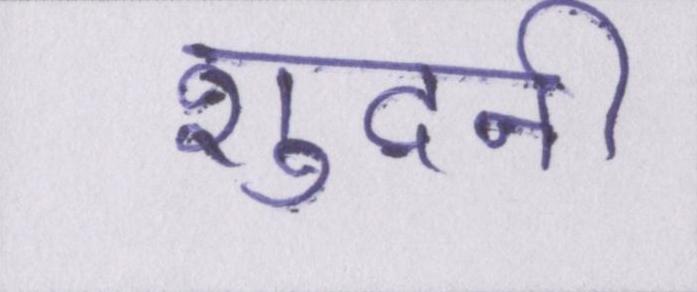 शुदनी